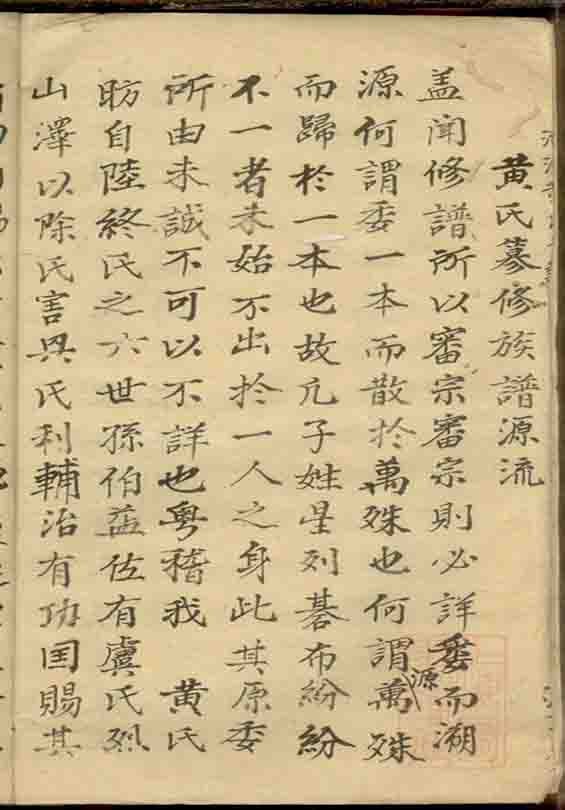 黃氏纂修族譜源流
盖聞修譜所以審宗審宗則必詳委而溯
源何謂委一本而散於萬殊也何謂源萬殊
而歸於一本也故凢子姓星列碁布紛紛
不一者未始不出於一人之身此其原委
所由未誠不可以不詳也粵稽我 黃氏
昉自陸終氏之六世孫伯益佐有虞氏烈
山澤以除民害興民利輔治有功因賜其